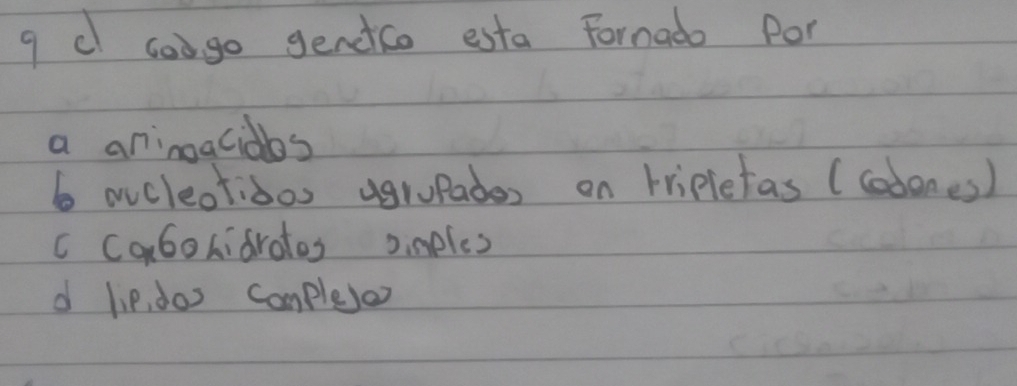 9 el codgo genetico esta Formado Por
a aminoacidos
b nucleotidos agrupados en tripletas (codones)
c Carbohidratos simples
d lipidos complejos